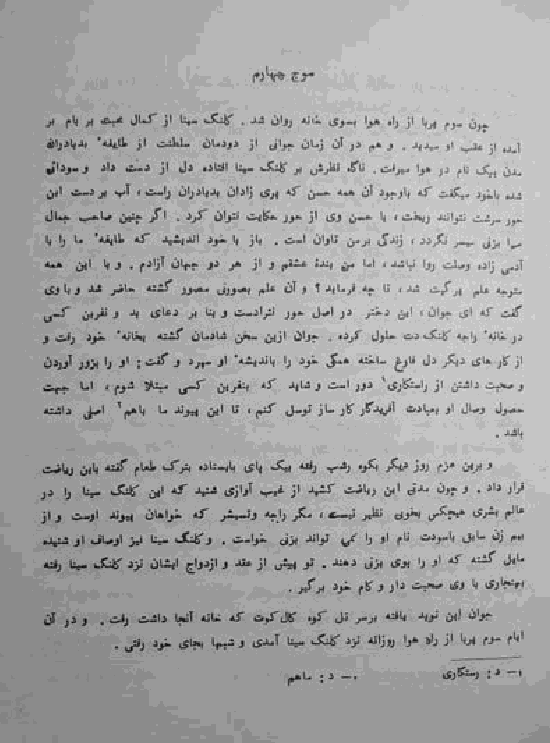 موج چهارم
چون سوم پربا از راه هوا بسوی خانه روان شد . کلنگ سینا از کمال محبت بر بام بر
آمده از عقب او میدید . و هم در آن زمان جوانی از دودمان سلطنت از طایفهٔ بدیادران
مدن بیگ نام در هوا میرفت . ناگه نظرش بر کلنگ سینا افتاده دل از دست داد و سودائی
شده باخود میگفت که باوجود آن همه حسن که پری زادان بدیادران راست ، آب بر دست این
حور سرشت نتوانند ریخت ، با حسن وی از حور حکایت نتوان کرد . اگر چنین صاحب جمال
مرا بزنی میسر نگردد ، زندگی برمن تاوان است . باز با خود اندیشید که طایفهٔ ما را با
آدمی زاده وصلت روا نباشد ، اما من بندهٔ عشقم و از هر دو جهان آزادم . و با این همه
متوجه علم پرگمت شد ، تا چه فرماید ؟ و آن علم بصورتی مصور گشته حاضر شد و باوی
گفت که ای جوان ، این دختر در اصل حور نژادست و بنا بر دعای بد و نفرین کسی
در خانهٔ راجه کلنگ دت حلول کرده . جوان ازین سخن شادمان گشته بخانهٔ خود رفت و
از کارهای دیگر دل فارغ ساخته همگی خود را باندیشهٔ او سپرد و گفت : او را بزور آوردن
و صحبت داشتن از راستکاری دور است و شاید که بنفرین کسی مبتلا شوم ، اما جهت
حصول وصال او بعبادت آفریدگار کار ساز توسل کنم ، تا این پیوند ما باهم اصلی داشته
باشد .
و برین عزم روز دیگر بکوه رشب رفته بیک پای بایستاده بترک طعام گفته باین ریاضت
قرار داد . و چون مدتی این ریاضت کشید از غیب آوازی شنید که این کلنگ سینا را در
عالم بشری هیچکس بخوبی نظیر نیست ، مگر راجه وتسیش که خواهان پیوند اوست و از
بیم زن سابق باسودت نام او را نمی تواند بزنی خواست . و کلنگ سینا نیز اوصاف او شنیده
مایل گشته که او را بوی بزنی دهند . تو پیش از عقد و ازدواج ایشان نزد کلنگ سینا رفته
بهنجاری با وی صحبت دار و کام خود برگیر .
جوان این نوید یافته برسر تل کوه کال کوت که خانه آنجا داشت رفت . و در آن
ایام سوم پربا از راه هوا روزانه نزد کلنگ سینا آمدی و شبها بجای خود رفتی .
۱- د : رستکاری ۲- د : ماهم